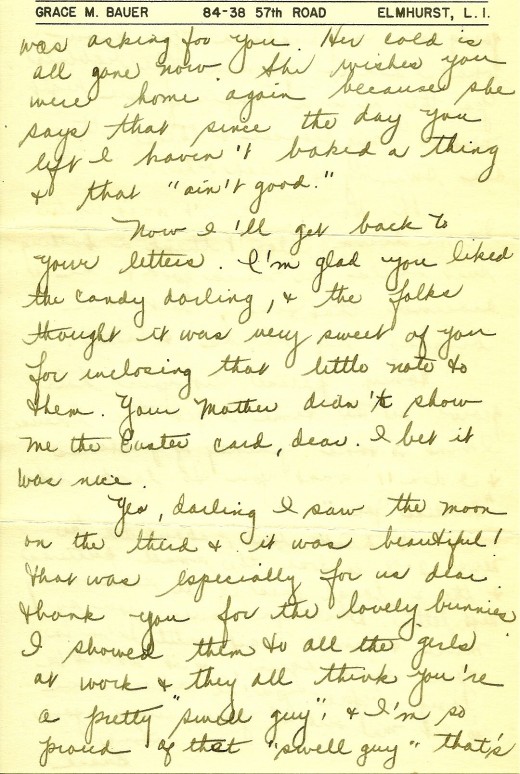 GRACE M. BAUER 84-38 57th ROAD ELMHURST, L. I.
was asking for you. Her cold is
all gone now. She wishes you
were home again because she
says that since the day you
left I haven't baked a thing
& that "ain't good."
Now I'll get back to
your letters. I'm glad you liked
the candy darling, & the folks
thought it was very sweet of you
for inclosing that little note to
them. Your Mother didn't show
me the Easter card, dear. I bet it
was nice.
Yes, darling I saw the moon
on the third & it was beautiful!
that was especially for us dear.
thank you for the lovely bunnies
I showed them to all the girls
at work & they all think you're
a pretty "swell guy"; & I'm so
proud of that "swell guy" that's